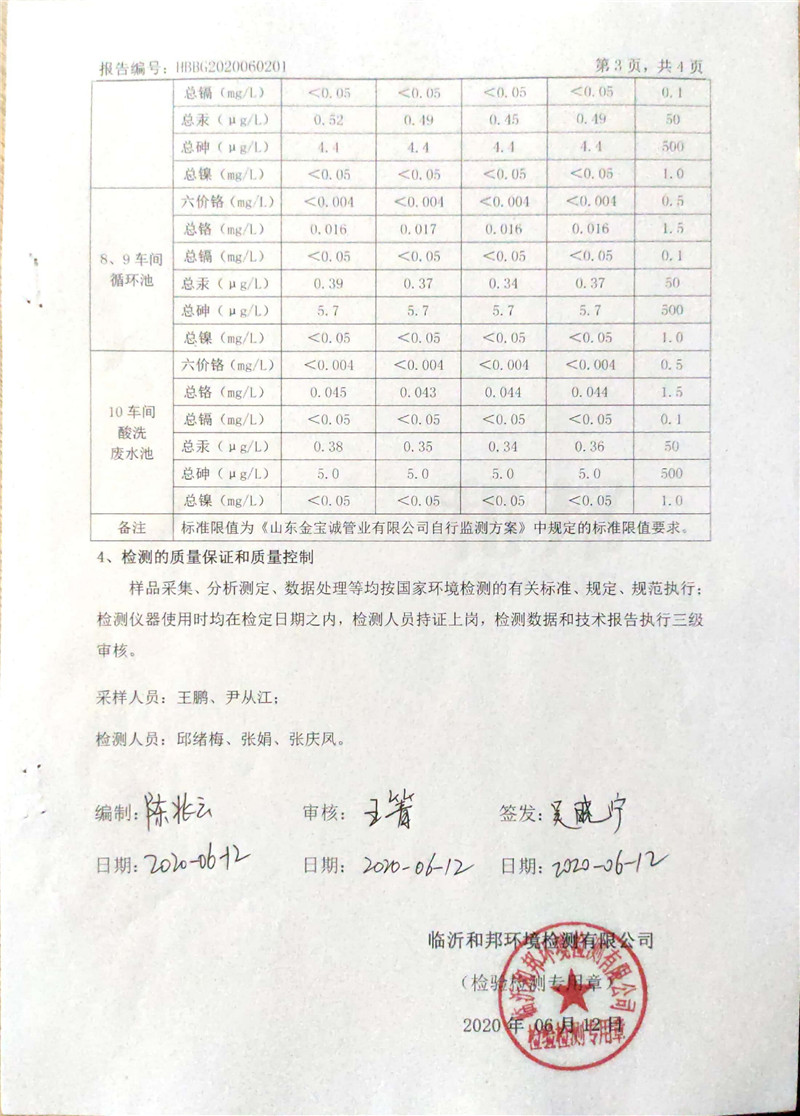 报告编号：HBBG2020060201 第 3 页，共 4 页
总镉（mg/L） <0.05 <0.05 <0.05 <0.05 0.1
总汞（μg/L） 0.52 0.49 0.45 0.49 50
总砷（μg/L） 4.4 4.4 4.4 4.4 500
总镍（mg/L） <0.05 <0.05 <0.05 <0.05 1.0
8、9 车间
循环池
六价铬（mg/L） <0.004 <0.004 <0.004 <0.004 0.5
总铬（mg/L） 0.016 0.017 0.016 0.016 1.5
总镉（mg/L） <0.05 <0.05 <0.05 <0.05 0.1
总汞（μg/L） 0.39 0.37 0.34 0.37 50
总砷（μg/L） 5.7 5.7 5.7 5.7 500
总镍（mg/L） <0.05 <0.05 <0.05 <0.05 1.0
10 车间
酸洗
废水池
六价铬（mg/L） <0.004 <0.004 <0.004 <0.004 0.5
总铬（mg/L） 0.045 0.043 0.044 0.044 1.5
总镉（mg/L） <0.05 <0.05 <0.05 <0.05 0.1
总汞（μg/L） 0.38 0.35 0.34 0.36 50
总砷（μg/L） 5.0 5.0 5.0 5.0 500
总镍（mg/L） <0.05 <0.05 <0.05 <0.05 1.0
备注 标准限值为《山东金宝诚管业有限公司自行监测方案》中规定的标准限值要求。
4、检测的质量保证和质量控制
样品采集、分析测定、数据处理等均按国家环境检测的有关标准、规定、规范执行；
检测仪器使用时均在检定日期之内，检测人员持证上岗，检测数据和技术报告执行三级
审核。
采样人员：王鹏、尹从江；
检测人员：邱绪梅、张娟、张庆凤。
编制：陈兆云 审核：王箐 签发：吴晓宁
日期：2020-06-12 日期：2020-06-12 日期：2020-06-12
临沂和邦环境检测有限公司
（检验检测专用章）
2020 年 06 月 12 日
临沂和邦环境检测有限公司
检验检测专用章